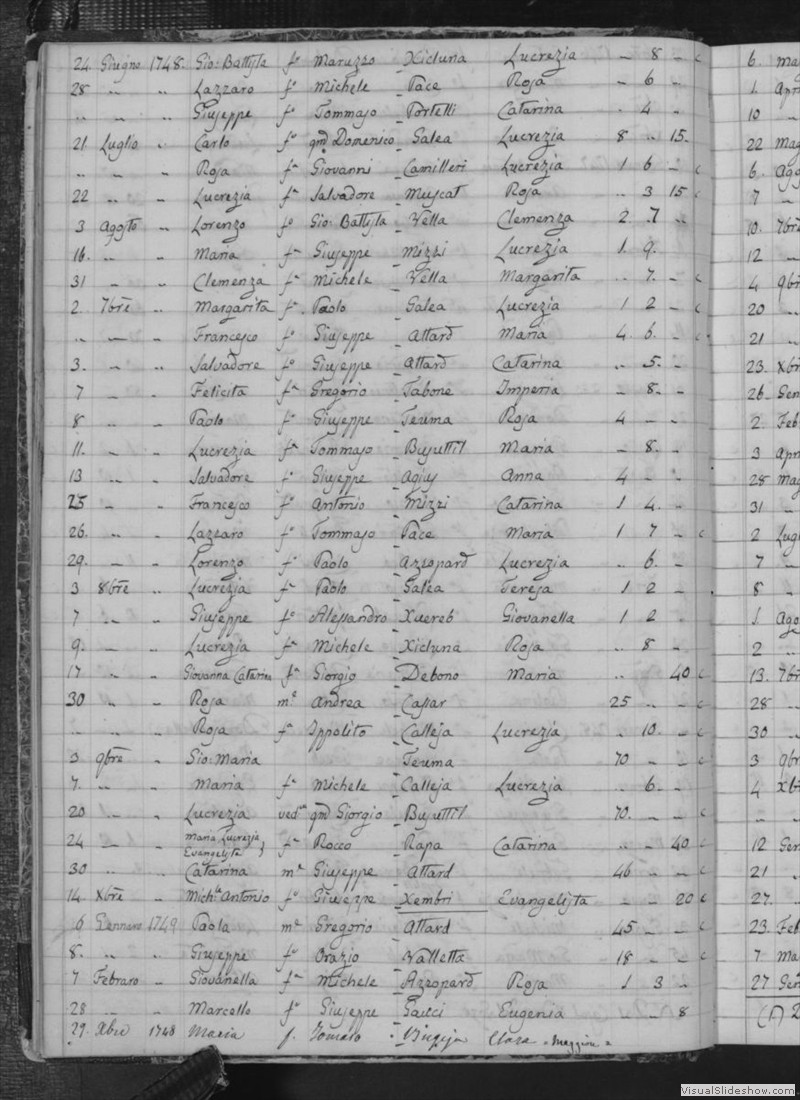 24 Giugno 1748. Gio: Battista fo Maruzzo Xicluna Lucrezia – 8 – c
28 „ „ Lazzaro fo Michele Pace Rosa – 6 –
„ „ „ Giuseppe fo Tommaso Portelli Catarina . 4 –
21 Luglio „ Carlo fo qm Domenico Galea Lucrezia 8 „ 15
„ „ „ Rosa fa Giovanni Camilleri Lucrezia 1 6 – c
22 „ „ Lucrezia fa Salvadore Muscat Rosa „ 3 15 c
3 Agosto „ Lorenzo fo Gio: Battista Vella Clemenza 2 7 „
16. „ „ Maria fa Giuseppe Mizzi Lucrezia 1 9 .
31 „ „ Clemenza fa Michele Vella Margarita „ 7 – c
2. 7bre „ Margarita fa Paolo Galea Lucrezia 1 2 – c
„ – „ Francesco fo Giuseppe Attard Maria 4 6 – c
3. – „ Salvadore fo Giuseppe Attard Catarina „ 5 –
7 – „ Felicita fa Gregorio Tabone Imperia – 8 –
8 „ – Paolo fo Giuseppe Teuma Rosa 4 – –
11. – „ Lucrezia fa Tommaso Busuttil Maria – 8 –
13 – „ Salvadore fo Giuseppe Agius Anna 4 –
25 – „ Francesco fo Antonio Mizzi Catarina 1 4 –
26. „ „ Lazzaro fo Tommaso Pace Maria 1 7 – c
29. – „ Lorenzo fo Paolo Azzopard Lucrezia „ 6 –
3 8bre „ Lucrezia fa Paolo Galea Teresa 1 2 – c
7 „ – Giuseppe fo Alessandro Xuereb Giovanella 1 2
9. – „ Lucrezia fa Michele Xicluna Rosa „ 8 –
17 „ „ Giovanna Catarina fa Giorgio Debono Maria „ 40 c
30 „ „ Rosa me Andrea Casar 25 „ – c
„ „ „ Rosa fa Ippolito Calleja Lucrezia – 10 – c
3 9bre – Gio: Maria Teuma 70 – – c
7. „ „ Maria fa Michele Calleja Lucrezia „ 6 –
20 „ Lucrezia veda qm Giorgio Busuttil 70 – c
24 – „ Maria Lucrezia Evangelista } fa Rocco Rapa Catarina „ – 40 c
30 „ Catarina me Giuseppe Attard 46 – – c
14 Xbre „ Michle Antonio fo Giuseppe Xembri Evangelista – – 20 c
6 Gennaro 1749 Paola me Gregorio Attard 45 – – c
8. „ „ Giuseppe fo Orazio Valletta 18 – – c
7 Febraro – Giovanella fa Michele Azzopard Rosa 1 3 –
28 – „ Marcello fo Giuseppe Gauci Eugenia – „ 8
29. Xbre 1748 Maria f. Clara
6. Ma
1. Apri
10 „
22 Mag
6. Ago
7 „
10. 7bre
12 „
4 9bre
20 „
21 „
23. Xbr
26 Gen
2. Feb
3 Apri
28 Mag
31 „
2 Lugl
7 „
8 „
1. Ago
2 „
13. 7bre
28 „
30 „
3 9br
4 Xbr
„ „
12 Gen
21 „
27. „
23. Feb
7 Ma
27 Gen
VisualSlideshow.com